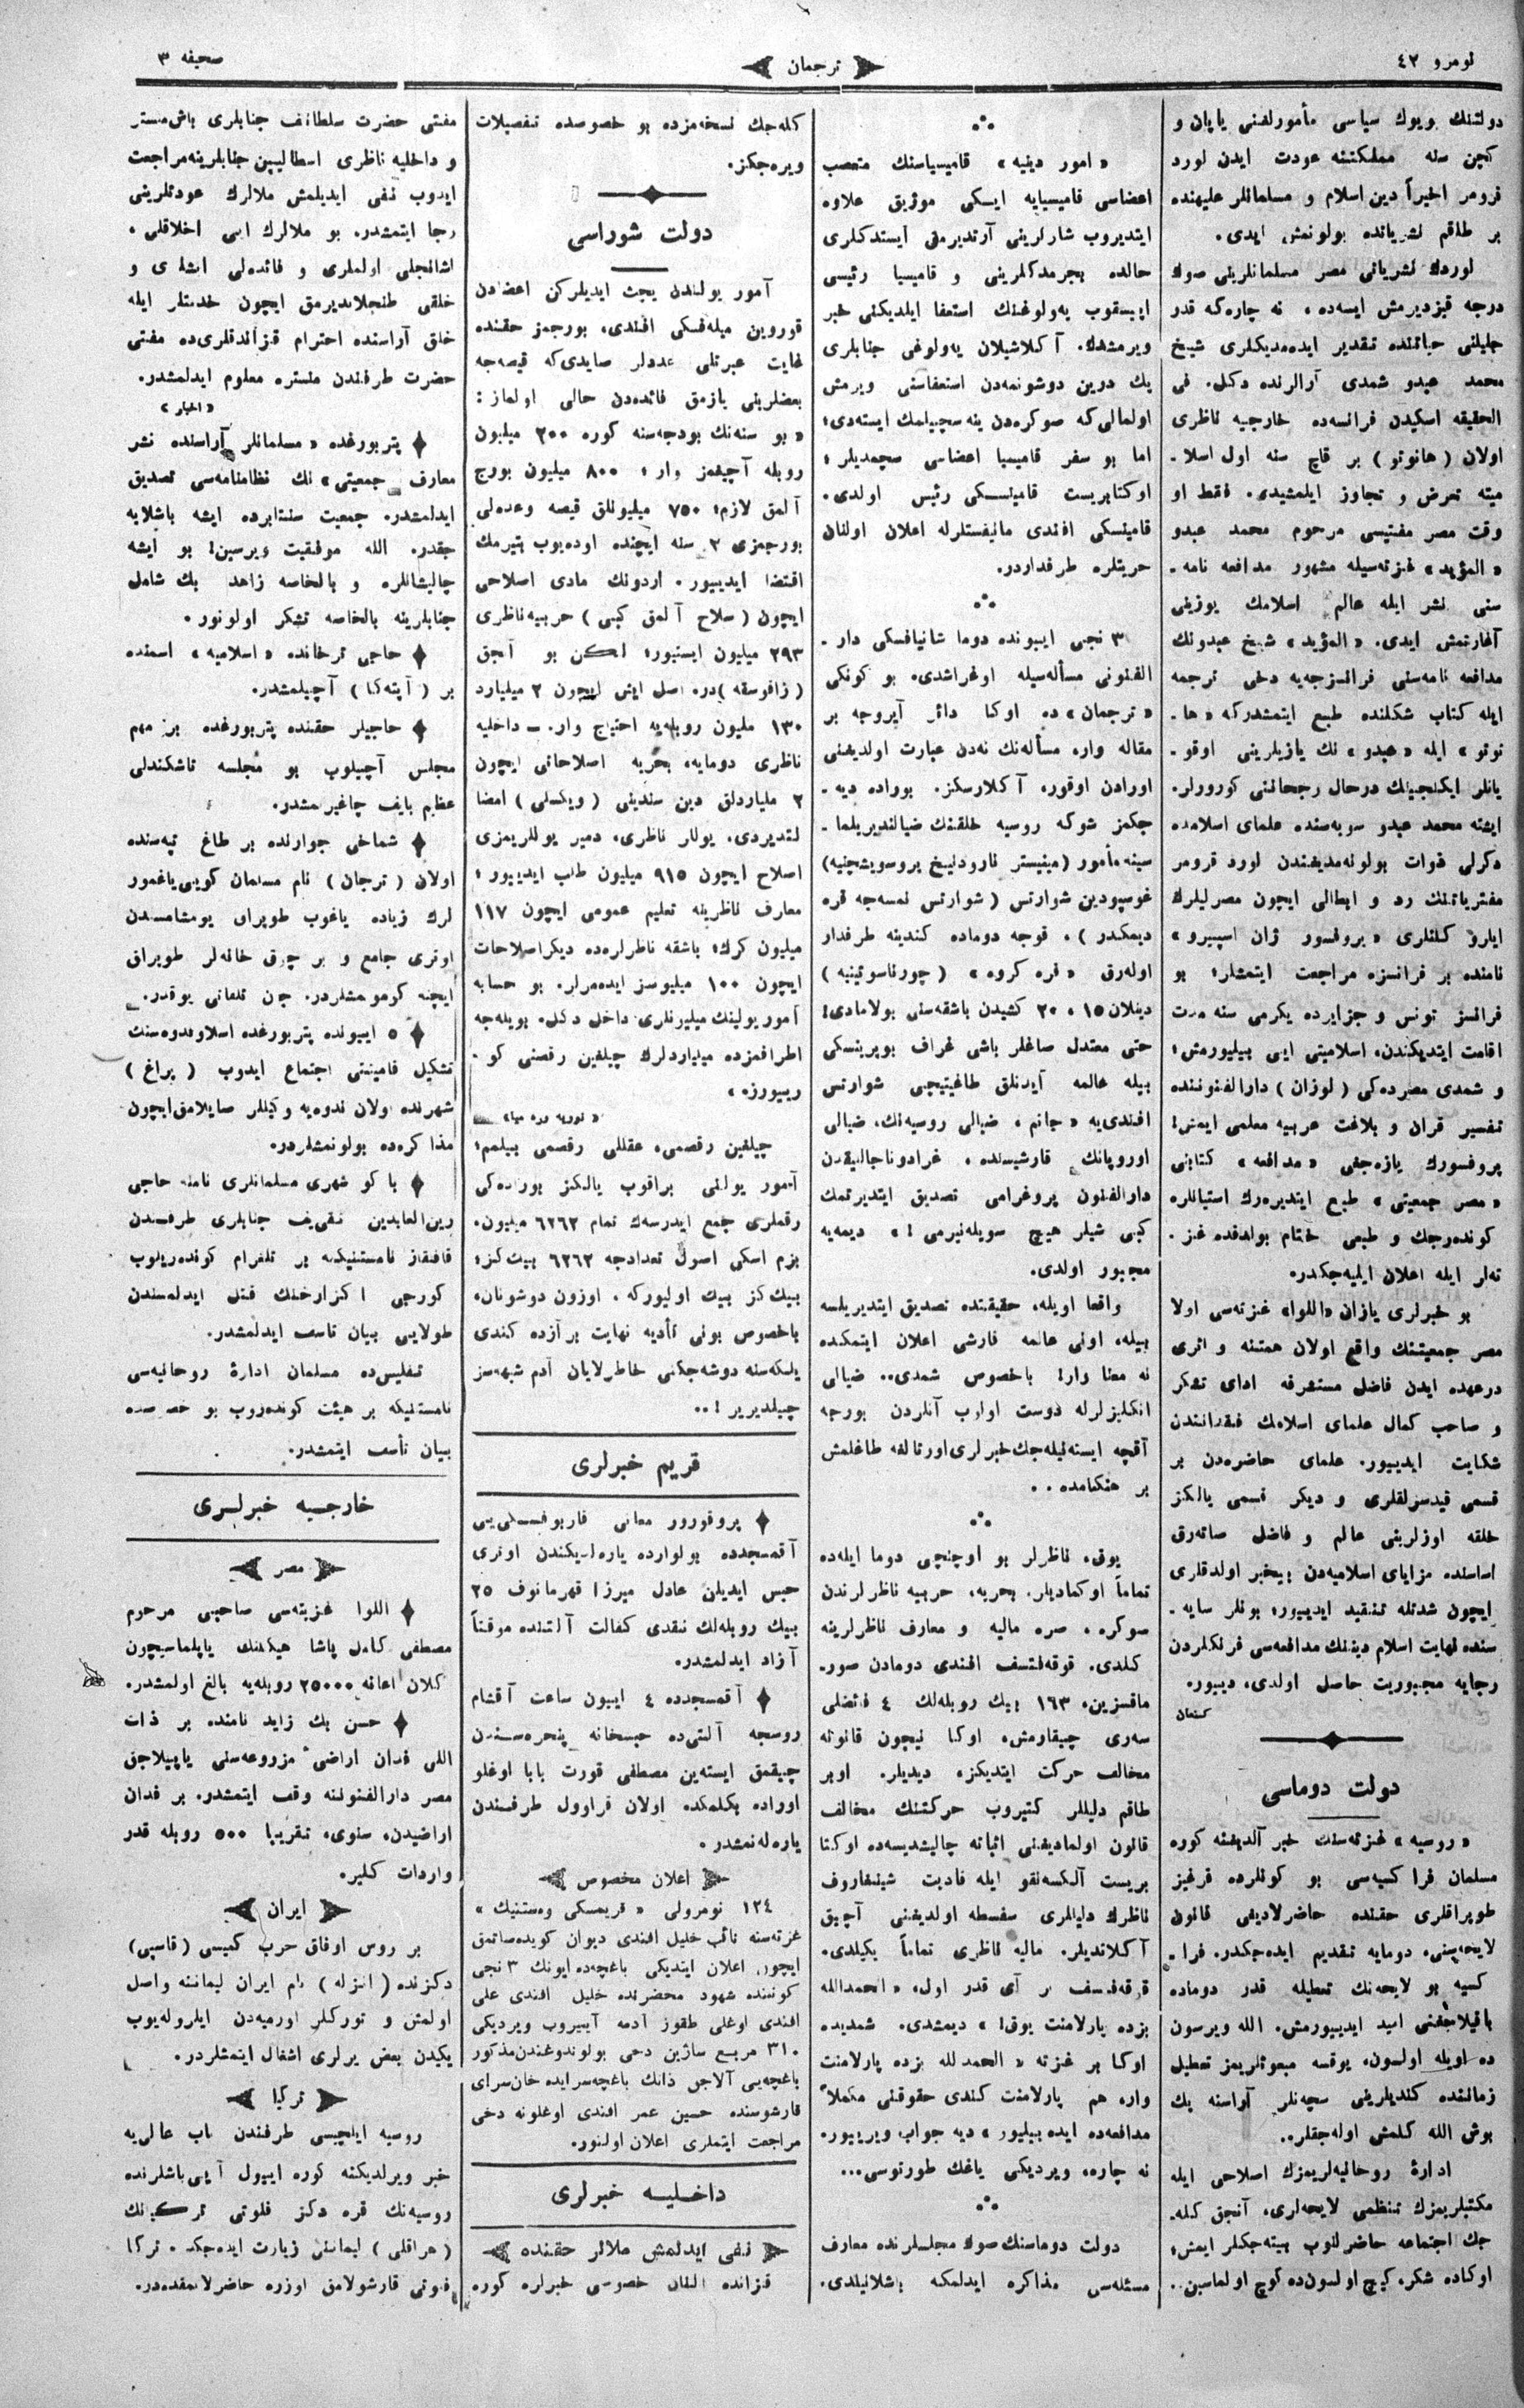 نومرو ٤٢
ترجمان
صحيفه ٣
دولتنك بويوك سياسى مأمورلغنى ياپان و
كچن سنه مملكتنه عودت ايدن لورد
قرومر اخيراً دين اسلام و مسلمانلر عليهنده
بر طاقم نشرياتده بولونمش ايدى.
لوردك نشرياتى مصر مسلمانلرينى صوك
درجه قيزديرمش ايسه‌ده، نه چاره‌كه قدر
جليلنى حياتنده تقدير ايده‌مديكلرى شيخ
محمد عبدو شمدى آرالرنده دكل. فى
الحقيقه اسكيدن فرانسه‌ده خارجيه ناظرى
اولان (هانوتو) بر قاچ سنه اول اسلا-
ميته تعرض و تجاوز ايلمشيدى. فقط او
وقت مصر مفتيسى مرحوم محمد عبدو
«المؤيد» غزته‌سيله مشهور مدافعه نامه-
سنى نشر ايله عالم اسلامك يوزينى
آغارتمش ايدى. «المؤيد» شيخ عبدونك
مدافعه نامه‌سنى فرانسزجه‌يه دخى ترجمه
ايله كتاب شكلنده طبع ايتمشدركه «ها-
نوتو» ايله «عبدو» نك يازيلرينى اوقو-
يانلر ايكنجينك درحال رجحاننى كورورلر.
ايشته محمد عبدو سويه‌سنده علماى اسلامده
دكرلى ذوات بولونه‌مديغندن لورد قرومر
مفترياتنك رد و ابطالى ايچون مصرليلرك
ايلرو كلنلرى «پروفسور ژان اسپيرو»
نامنده بر فرانسزه مراجعت ايتمشلر؛ بو
فرانسز تونس و جزايرده يكرمى سنه مدت
اقامت ايتديكندن، اسلاميتى ايى بيليورمش؛
و شمدى مصرده‌كى (لوزان) دارالفنوننده
تفسير قران و بلاغت عربيه معلمى ايمش!
پروفسورك يازه‌جغى «مدافعه» كتابنى
«مصر جمعيتى» طبع ايتديره‌رك استيانلره
كونده‌رجك و طبعى ختام بولدقده غز-
ته‌لر ايله اعلان ايليه‌جكدر.
بو خبرلرى يازان «اللوا» غزته‌سى اولا
مصر جمعيتنك واقع اولان همتنه و اثرى
درعهده ايدن فاضل مستشرقه اداى تشكر
و صاحب كمال علماى اسلامك فقدانندن
شكايت ايدييور. علماى حاضره‌دن بر
قسمى قيدسزلقلرى و ديكر قسمى يالكز
خلقه اوزلرينى عالم و فاضل صاته‌رق
اساسنده مزاياى اسلاميه‌دن بيخبر اولدقلرى
ايچون شدتله تنقيد ايدييور؛ بونلر سايه-
سنده نهايت اسلام دينك مدافعه‌سى فرنكلردن
رجايه مجبوريت حاصل اولدى، دييور.
كنعان
دولت دوماسى
«روسيه» غزته‌سنك خبر آلديغنه كوره
مسلمان فراكسيه‌سى بو كونلرده قرغيز
طوپراقلرى حقنده حاضرلاديغى قانون
لايحه‌سنى، دومايه تقديم ايده‌جكدر. فرا-
كسيه بو لايحه‌نك تعطيله قدر دوماده
باقيلاجغنى اميد ايدييورمش. الله ويرسون
ده اويله اولسون، يوقسه مبعوثلريمز تعطيل
زماننده كنديلرينى سچه‌نلر آراسنه پك
بوش الله كلمش اوله‌جقلر.
ادارۀ روحانيه‌لريمزك اصلاحى ايله
مكتبلريمزك تنظيمى لايحه‌لرى، آنجق كله-
جك اجتماعه حاضرلنوب بيته‌جكلر ايمش؛
اوكاده شكر، كيچ اولسون‌ده كوچ اولماسين..
«امور دينيه» قاميسياسنك متعصب
اعضاسى قاميسيايه ايسكى موثريق علاوه
ايتديروب شارلرينى آرتديرمق ايستدكلرى
حالده بجرمدكلرينى و قاميسيا رئيسى
اپيسقوپ يه‌ولوغنك استعفا ايلديكنى خبر
ويرمشدك. آكلاشيلان يه‌ولوغى جنابلرى
پك درين دوشونمه‌دن استعفاسنى ويرمش
اولمالى‌كه صوكره‌دن ينه سچيلمك ايسته‌دى؛
اما بو سفر قاميسيا اعضاسى سچمديلر؛
اوكتابريست قامينسكى رئيس اولدى.
قامينسكى افندى مانيفستلرله اعلان اولنان
حريتلره طرفداردر.
٣ نجى ايبونده دوما شانيافسكى دار-
الفنونى مسأله‌سيله اوغراشدى. بو كونكى
«ترجمان» ده اوكا دائر آيروجه بر
مقاله وار، مسأله‌نك نه‌دن عبارت اولديغنى
اورادن اوقور، آكلارسكز. بوراده ديه-
جكمز شوكه روسيه خلقنك ضيالنديريلما-
سينه مأمور (مينيستر نارودنيغ پروسويشچنيه)
غوسپودين شوارتس (شوارتس نمسه‌جه قره
ديمكدر)، قوجه دوماده كندينه طرفدار
اوله‌رق «قره كروه» (چورناسوتنيه)
دينلان ١٥، ٢٠ كشيدن باشقه‌سنى بولامادى!
حتى معتدل صاغلر باشى غراف بوبرينسكى
بيله عالمه آيدنلق طاغيتيجى شوارتس
افندى‌يه «جانم، ضيالى روسيه‌نك، ضيالى
اوروپانك قارشيسنده، غرادوناچالنيقدن
دارالفنون پروغرامى تصديق ايتديرتمك
كبى شيلر هيچ سويله‌نيرمى!» ديمه‌يه
مجبور اولدى.
واقعا اويله، حقيقتده تصديق ايتديريلسه
بيله، اونى عالمه قارشى اعلان ايتمكده
نه معنا وار! باخصوص شمدى.. ضيالى
انكليزلرله دوست اولوب آنلردن بورجه
آقچه ايسته‌نيله‌جك خبرلرى اورتالغه طاغلمش
بر هنكامده..
يوق، ناظرلر بو اوچنجى دوما ايله‌ده
تماماً اوكماديلر. بحريه، حربيه ناظرلرندن
صوكره، صره ماليه و معارف ناظرلرينه
كلدى. قوقه‌فتسف افندى دومادن صور-
ماقسزين، ١٦٣ بيك روبله‌لك ٤ فائضلى
سه‌رى چيقارمش، اوكا نيچون قانونه
مخالف حركت ايتديكز، ديديلر. اوبر
طاقم دليللر كتيروب حركتنك مخالف
قانون اولماديغنى اثباته چاليشديسه‌ده اوكتا
بريست آلكسه‌نقو ايله قادبت شينغاروف
ناظرك دليللرى سفسطه اولديغنى آچيق
آكلاتديلر. ماليه ناظرى تماماً يكيلدى.
قوقه‌فتسف بر آى قدر اول، «الحمدالله
بزده پارلامنت يوق!» ديمشدى. شمديده
اوكا بر غزته «الحمد لله بزده پارلامنت
وار، هم پارلامنت كندى حقوقنى مكملاً
مدافعه‌ده ايده‌بيليور» ديه جواب ويرييور.
نه چاره، ويرديكى ياغك طورتوسى...
دولت دوماسنك صوك مجلسلرنده معارف
مسئله‌سى مذاكره ايدلمكه باشلانيلدى.
كله‌جك نسخه‌مزده بو خصوصده تفصيلات
ويره‌جكز.
دولت شوراسى
آمور يولندن بحث ايديلركن اعضادن
قوروين ميله‌فسكى افندى، بورجمز حقنده
غايت عبرتلى عددلر صايدى‌كه قيصه‌جه
بعضلرينى يازمق فائده‌دن خالى اولماز:
«بو سنه‌نك بودجه‌سنه كوره ٢٠٠ ميليون
روبله آچيغمز وار؛ ٨٠٠ ميليون بورج
آلمق لازم؛ ٧٥٠ ميليونلق قيصه وعده‌لى
بورجمزى ٢ سنه ايچنده اوده‌يوب بتيرمك
اقتضا ايدييور. اردونك مادى اصلاحى
ايچون (سلاح آلمق كبى) حربيه ناظرى
٢٩٣ ميليون ايستيور؛ لكن بو آنجق
(زاقوسقه) در. اصل ايش ايچون ٢ ميليارد
١٣٠ مليون روبله‌يه احتياج وار. ـ داخليه
ناظرى دومايه، بحريه اصلاحاتى ايچون
٢ ملياردلق دين سندينى (ويكسلى) امضا
لتديردى. يوللر ناظرى، دمير يوللريمزى
اصلاح ايچون ٩١٥ ميليون طلب ايدييور؛
معارف ناظرينه تعليم عمومى ايچون ١١٧
ميليون كرك؛ باشقه ناظرلره‌ده ديكر اصلاحات
ايچون ١٠٠ ميليونسز ايده‌مزلر. بو حسابه
آمور يولينك ميليونلرى داخل دكل. بويله‌جه
اطرافمزده ميلياردلرك چيلغين رقصنى كو-
رييورز.»
چيلغين رقصمى، عقللى رقصمى بيلمم؛
آمور يولنى براقوب يالكز بوراده‌كى
رقملرى جمع ايدرسه‌ك تمام ٦٢٦٢ ميليون.
بزم اسكى اصول تعدادجه ٦٢٦٢ بيك كز؛
بيك كز بيك اوليورکه، اوزون دوشونان،
باخصوص بونى تأديه نهايت بر آزده كندى
يلكه‌سنه دوشه‌جكنى خاطرلايان آدم شبهه‌سز
چيلديرير!..
قريم خبرلرى
پروقورور معانى قاربوفسكى‌يى
آقمسجدده بولوارده ياره‌ليكندن اوترى
حبس ايديلن عادل ميرزا قهرمانوف ٢٥
بيك روبله‌لك نقدى كفالت آلتنده موقتاً
آزاد ايدلمشدر.
آقمسجدده ٤ ايبون ساعت آقشام
روسجه آلتى‌ده حبسخانه پنجره‌سندن
چيقمق ايسته‌ين مصطفى قورت بابا اوغلو
اوراده بكلمكده اولان قراوول طرفندن
ياره‌له‌نمشدر.
اعلان مخصوص
١٢٤ نومرولى «قريمسكى وه‌ستنيك»
غزته‌سنه نائب خليل افندى ديوان كويده صاتمق
ايچون اعلان ايتديكى باغچه‌ده ايونك ٣ نجى
كوننده شهود محضرنده خليل افندى على
افندى اوغلى طقوز آدمه آييروب ويرديكى
٣١٠ مربع ساژين دخى بولوندوغندن مذكور
باغچه‌يى آلاجق ذاتك باغچه‌سرايده خان‌سراى
قارشوسنده حسين عمر افندى اوغلونه دخى
مراجعت ايتملرى اعلان اولنور.
داخليه خبرلرى
نفى ايدلمش ملالر حقنده
قزانده النان خصوصى خبرلره كوره
مفتى حضرت سلطانف جنابلرى باش منستر
و داخليه ناظرى استاليپين جنابلرينه مراجعت
ايدوب نفى ايديلمش ملالرك عودتلرينى
رجا ايتمشدر. بو ملالرك ايى اخلاقلى،
اشانجلى اولملرى و فائده‌لى ايشلرى و
خلقى طنجلانديرمق ايچون خدمتلر ايله
خلق آراسنده احترام قزاندقلرى‌ده مفتى
حضرت طرفندن منستره معلوم ايدلمشدر.
«اخبار»
پتربورغده «مسلمانلر آراسنده نشر
معارف جمعيتى» نك نظامنامه‌سى تصديق
ايدلمشدر. جمعيت سنتابرده ايشه باشلايه
جقدر. الله موفقيت ويرسين! بو ايشه
چاليشانلره و بالخاصه زاهد بك شامل
جنابلرينه بالخاصه تشكر اولونور.
حاجى ترخانده «اسلاميه» اسمنده
بر (آپته‌كا) آچيلمشدر.
حاجيلر حقنده پتربورغده بر مهم
مجلس آچيلوب بو مجلسه تاشكندلى
عظيم بايف چاغيرلمشدر.
شماخى جوارنده بر طاغ تپه‌سنده
اولان (ترجان) نام مسلمان كويى ياغمور
لرك زياده ياغوب طوپراق يومشامسندن
اوترى جامع و بر چوق خانه‌لر طوپراق
ايچنه كومولمشلردر. جان تلفاتى يوقدر.
٥ ايبونده پتربورغده اسلاوندوه‌سنك
تشكيل قاميتتى اجتماع ايدوب (پراغ)
شهرنده اولان ندوه‌يه وكيللر صايلامق ايچون
مذاكره‌ده بولونمشلردر.
باكو شهرى مسلمانلرى نامنه حاجى
زين‌العابدين تقى‌يف جنابلرى طرفندن
قافقاز نامستنيكنه بر تلغرام كونده‌ريلوب
كورجى اكزارخنك قتل ايدلمسندن
طولايى بيان تاسف ايدلمشدر.
تفليس‌ده مسلمان ادارۀ روحانيه‌سى
نامستنيكه بر هيئت كونده‌روب بو خصوصده
بيان تأسف ايتمشدر.
خارجيه خبرلرى
مصر
اللوا غزيته‌سى صاحبى مرحوم
مصطفى كامل پاشا هيكلنك ياپلماسيچون
كلان اعانه ٢٥٠٠٠ روبله‌يه بالغ اولمشدر.
حسن بك زايد نامنده بر ذات
اللى فدان اراضى مزروعه‌سنى ياپيلاجق
مصر دارالفنوننه وقف ايتمشدر. بر فدان
اراضيدن، سنوى، تقريبا ٥٠٠ روبله قدر
واردات كلير.
ايران
بر روس اوفاق حرب كميسى (قاسپى)
دكزنده (انزله) نام ايران ليماننه واصل
اولمش و توركلر اورميه‌دن ايلروله‌يوب
يكيدن بعض يرلرى اشغال ايتمشلردر.
تركيا
روسيه ايلچيسى طرفندن باب عالى‌يه
خبر ويرلديكنه كوره ايبول آيى باشلرنده
روسيه‌نك قره دكز فلوتى تركيانك
(هراقلى) ليمانى زيارت ايده‌جكدر. تركيا
فلوتى قارشولامق اوزره حاضرلانمقده‌در.